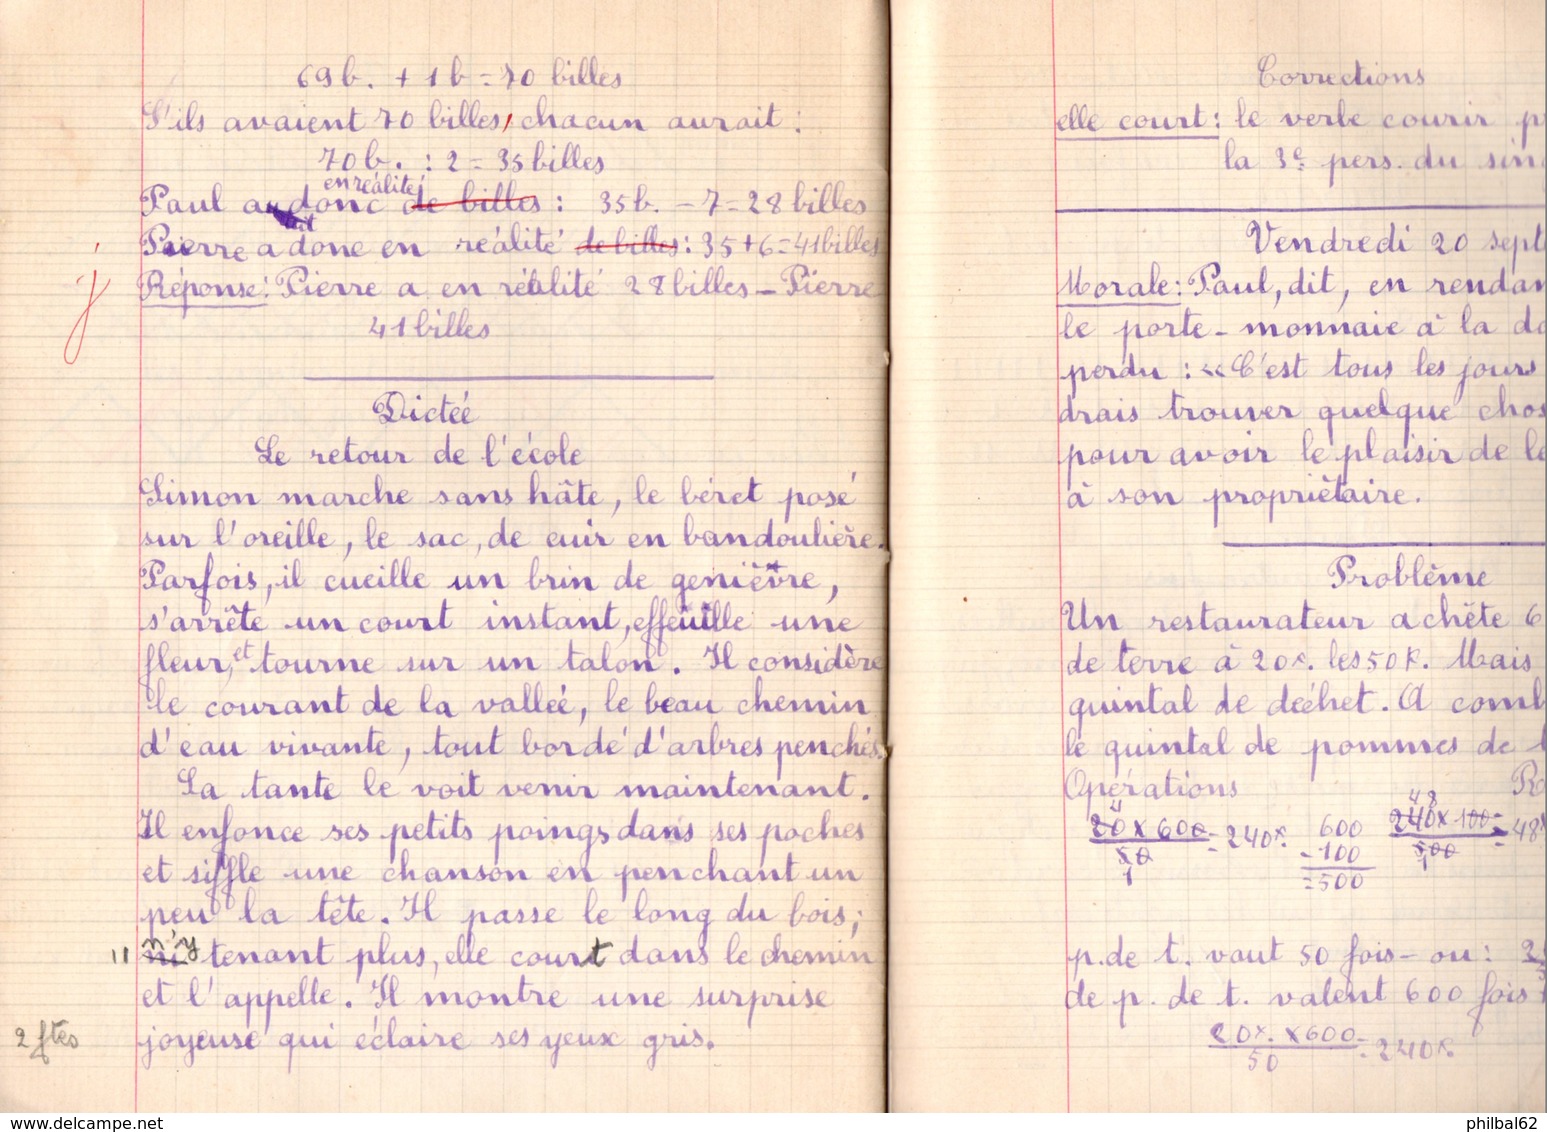 69b. + 1b = 70 billes
S'ils avaient 70 billes, chacun aurait :
70b. : 2 = 35 billes
en réalité
Paul a donc de billes : 35b. - 7 = 28 billes
Pierre a donc en réalité de billes : 35 + 6 = 41 billes
j
Réponse : Pierre a en réalité 28 billes - Pierre
41 billes
Dictée
Le retour de l'école
Simon marche sans hâte, le béret posé
sur l'oreille, le sac, de cuir en bandoulière.
Parfois, il cueille un brin de genièvre,
s'arrête un court instant, effeuille une
fleur, et tourne sur un talon. Il considère
le courant de la vallée, le beau chemin
d'eau vivante, tout bordé d'arbres penchés.
La tante le voit venir maintenant.
Il enfonce ses petits poings dans ses poches
et siffle une chanson en penchant un
peu la tête. Il passe le long du bois ;
11 n'y tenant plus, elle court dans le chemin
et l'appelle. Il montre une surprise
2 ftes joyeuse qui éclaire ses yeux gris.
Corrections
elle court : le verbe courir p
la 3e pers. du sin
Vendredi 20 sept
Morale : Paul, dit, en rendan
le porte-monnaie à la da
perdu : « C'est tous les jours
drais trouver quelque chos
pour avoir le plaisir de le
à son propriétaire.
Problème
Un restaurateur achète 6
de terre à 20f. les 50K. Mais
quintal de déchet. A comb
le quintal de pommes de t
Opérations Ré
4 48
20 x 600 = 240f. 600 240 x 100 = 48f
50 - 100 500
1 = 500 1
p. de t. vaut 50 fois - ou : 2
de p. de t. valent 600 fois
20f. x 600 = 240f.
50
www.delcampe.net philbal62